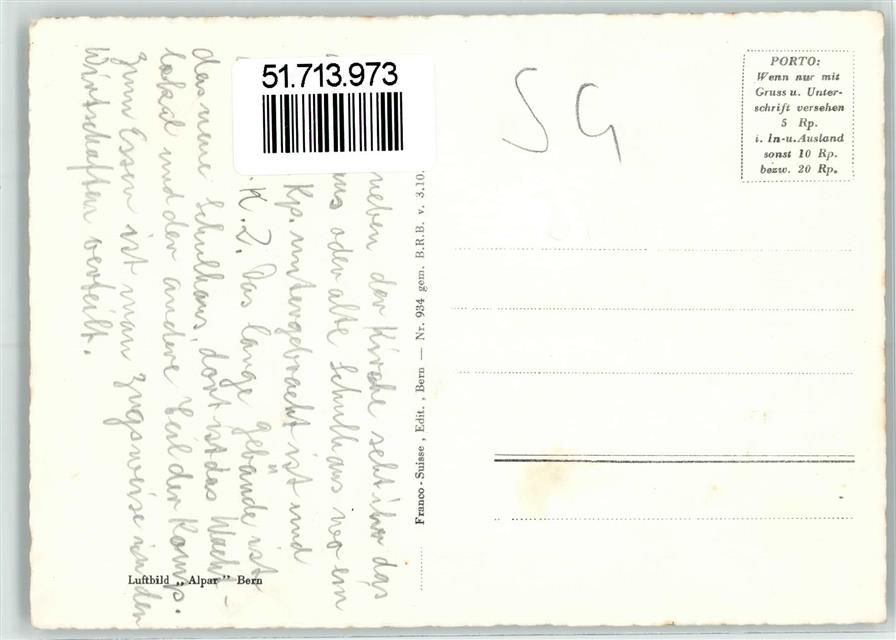 51.713.973
SG
PORTO:
Wenn nur mit
Gruss u. Unter-
schrift versehen
5 Rp.
i. In-u. Ausland
sonst 10 Rp.
bezw. 20 Rp.
neben der Kirche seht ihr das
oder alte Schulhaus wo ein
Kp. untergebracht ist und
K.Z. Das lange gebäude ist
das neue Schulhaus, dort ist das Wach-
lokal und der andere Teil der Komp.
zum Essen ist man zugsweise in den
Wirtschaften verteilt.
Franco-Suisse, Edit., Bern — Nr. 934 gem. B.R.B. v. 3.10.
Luftbild „Alpar" Bern